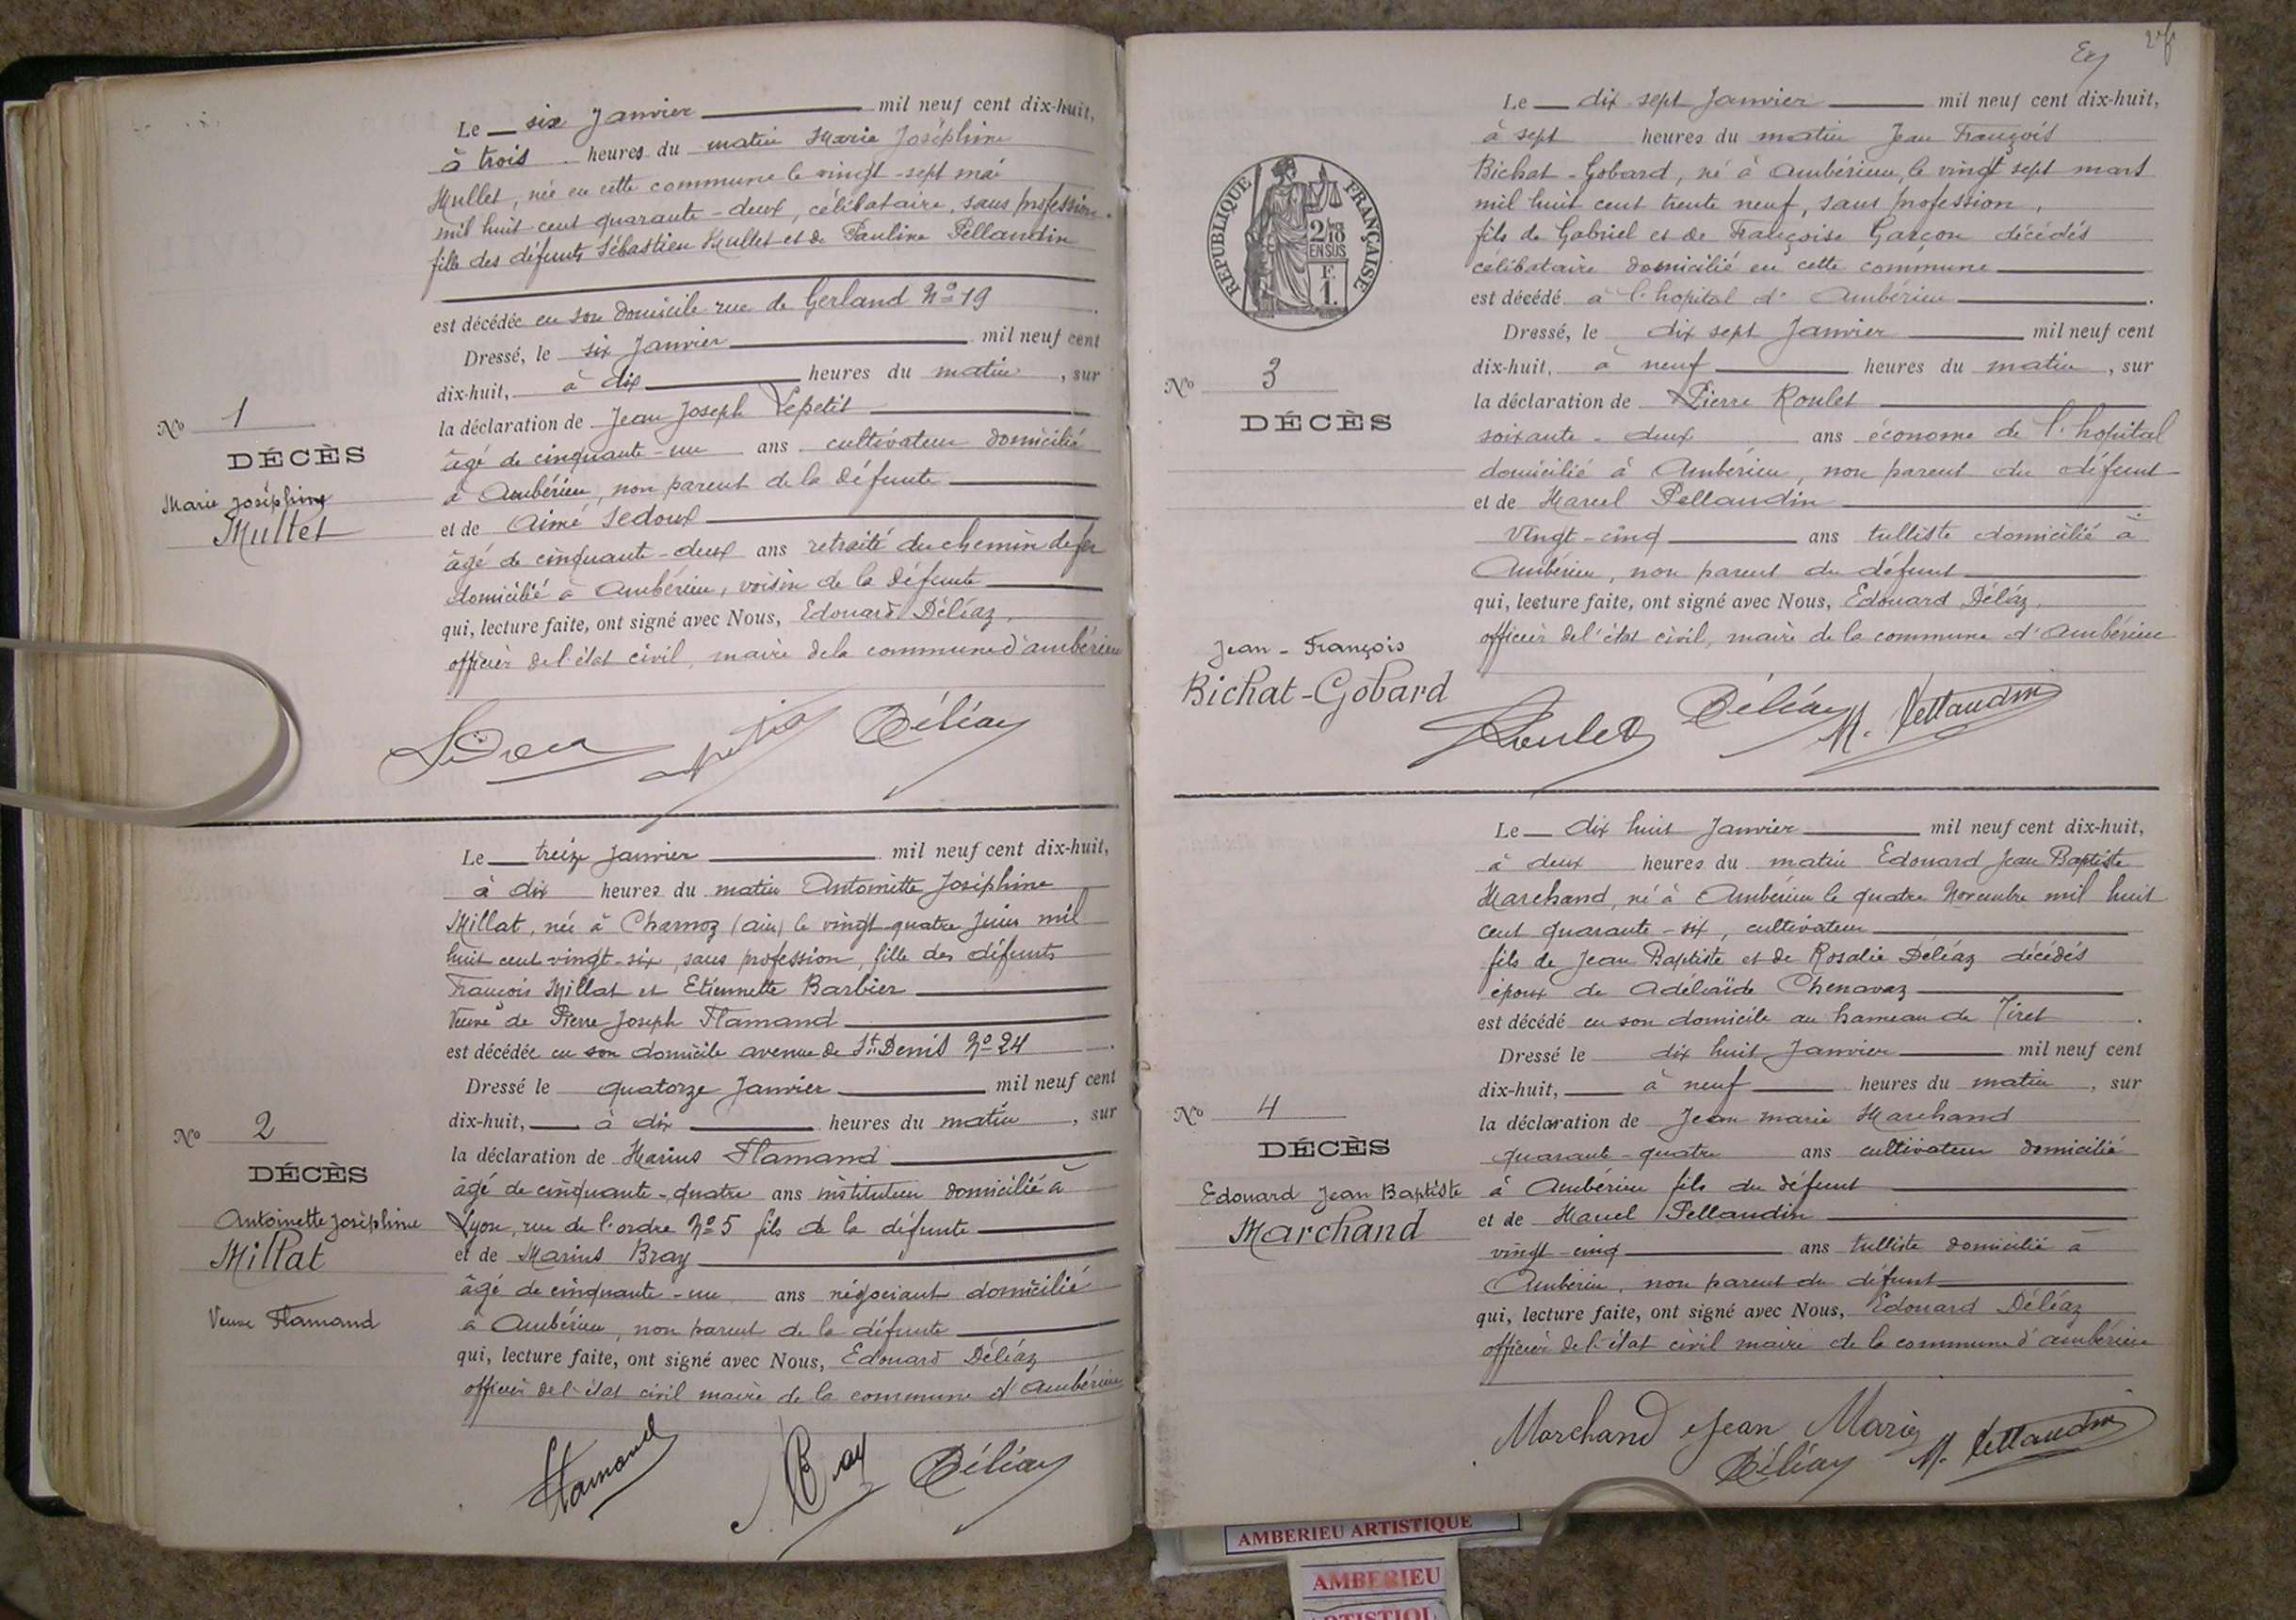 Le six Janvier mil neuf cent dix-huit,
à trois heures du matin Marie Joséphine
Mullet, née en cette commune le vingt-sept mai
mil huit cent quarante-deux, célibataire, sans profession.
fille des défunts Sébastien Mullet et de Pauline Pellaudin
est décédée en son domicile rue de Gerland No 19
Dressé, le six Janvier mil neuf cent
dix-huit, à dix heures du matin, sur
la déclaration de Jean Joseph Lepetit
âgé de cinquante-un ans cultivateur domicilié
à Ambérieu, non parent de la défunte
et de Aimé Sedoux
âgé de cinquante-deux ans retraité du chemin de fer
domicilié à Ambérieu, voisin de la défunte
qui, lecture faite, ont signé avec Nous, Edouard Déléaz,
officier de l'état civil, maire de la commune d'ambérieu
No 1
DÉCÈS
Marie Joséphine
Mullet
Déléaz
Le treize Janvier mil neuf cent dix-huit,
à dix heures du matin Antoinette Joséphine
Millat, née à Charnoz (ain) le vingt-quatre Juin mil
huit cent vingt-six, sans profession, fille des défunts
François Millat et Etiennette Barbier
Veuve de Pierre Joseph Flamand
est décédée en son domicile avenue de St Denis No 24
Dressé le quatorze Janvier mil neuf cent
dix-huit, à dix heures du matin, sur
la déclaration de Marius Flamand
âgé de cinquante-quatre ans instituteur domicilié à
Lyon, rue de l'ordre No 5 fils de la défunte
et de Marius Bray
âgé de cinquante-un ans négociant domicilié
à Ambérieu, non parent de la défunte
qui, lecture faite, ont signé avec Nous, Edouard Déléaz
officier de l'état civil maire de la commune d'Ambérieu
No 2
DÉCÈS
Antoinette Joséphine
Millat
Veuve Flamand
Flamand Bray Déléaz
RÉPUBLIQUE FRANÇAISE
2/10
EN SUS
F.
1.
Le dix sept Janvier mil neuf cent dix-huit,
à sept heures du matin Jean François
Bichat-Gobard, né à Ambérieu, le vingt sept mars
mil huit cent trente neuf, sans profession,
fils de Gabriel et de Françoise Garçon décédés
célibataire domicilié en cette commune
est décédé à l'hopital d'Ambérieu.
Dressé, le dix sept Janvier mil neuf cent
dix-huit, à neuf heures du matin, sur
la déclaration de Pierre Roulet
soixante-deux ans économe de l'hopital
domicilié à Ambérieu, non parent du défunt
et de Marcel Pellaudin
Vingt-cinq ans tulliste domicilié à
Ambérieu, non parent du défunt
qui, lecture faite, ont signé avec Nous, Edouard Déléaz,
officier de l'état civil, maire de la commune d'Ambérieu
No 3
DÉCÈS
Jean-François
Bichat-Gobard
Roulet Déléaz M. Pellaudin
Le dix huit Janvier mil neuf cent dix-huit,
à deux heures du matin Edouard Jean Baptiste
Marchand, né à Ambérieu le quatre Novembre mil huit
cent quarante-six, cultivateur
fils de Jean Baptiste et de Rosalie Déléaz décédés
époux de Adélaïde Chenavaz
est décédé en son domicile au hameau de Tiret.
Dressé le dix huit Janvier mil neuf cent
dix-huit, à neuf heures du matin, sur
la déclaration de Jean marie Marchand
quarante-quatre ans cultivateur domicilié
à Ambérieu fils du défunt
et de Marcel Pellaudin
vingt-cinq ans tulliste domicilié à
Ambérieu, non parent du défunt
qui, lecture faite, ont signé avec Nous, Edouard Déléaz
officier de l'état civil maire de la commune d'ambérieu
No 4
DÉCÈS
Edouard Jean Baptiste
Marchand
Marchand Jean Marie
Déléaz M. Pellaudin
AMBERIEU ARTISTIQUE
AMBERIEU